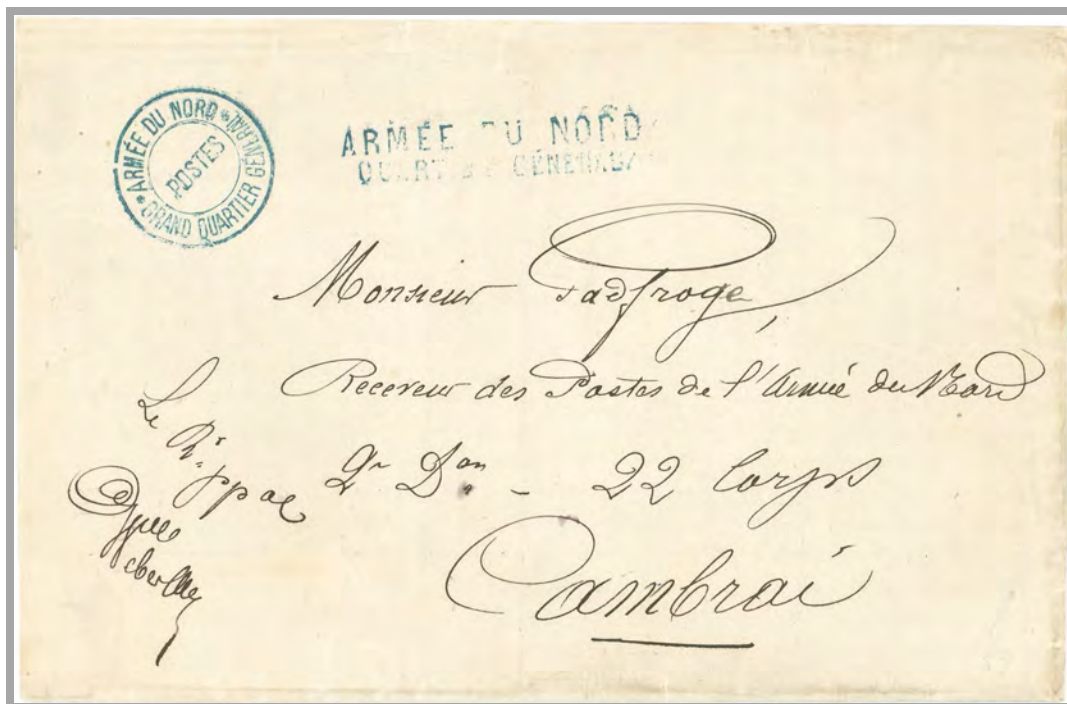 *ARMÉE DU NORD*
GRAND QUARTIER GÉNÉRAL
POSTES
ARMÉE DU NORD
QUARTIER GÉNÉRAL
Monsieur Padfroge,
Receveur des Postes de l'Armée du Nord
2e Don - 22 Corps
Cambrai
Le Rr ppal